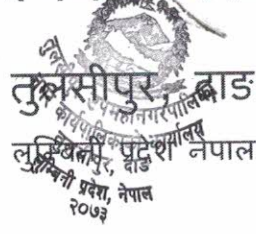 तुलसीपुर, दाङ
लुम्बिनी प्रदेश नेपाल
तुलसीपुर उपमहानगरपालिका
नगर कार्यपालिकाको कार्यालय
तुलसीपुर, दाङ
लुम्बिनी प्रदेश, नेपाल
२०७३